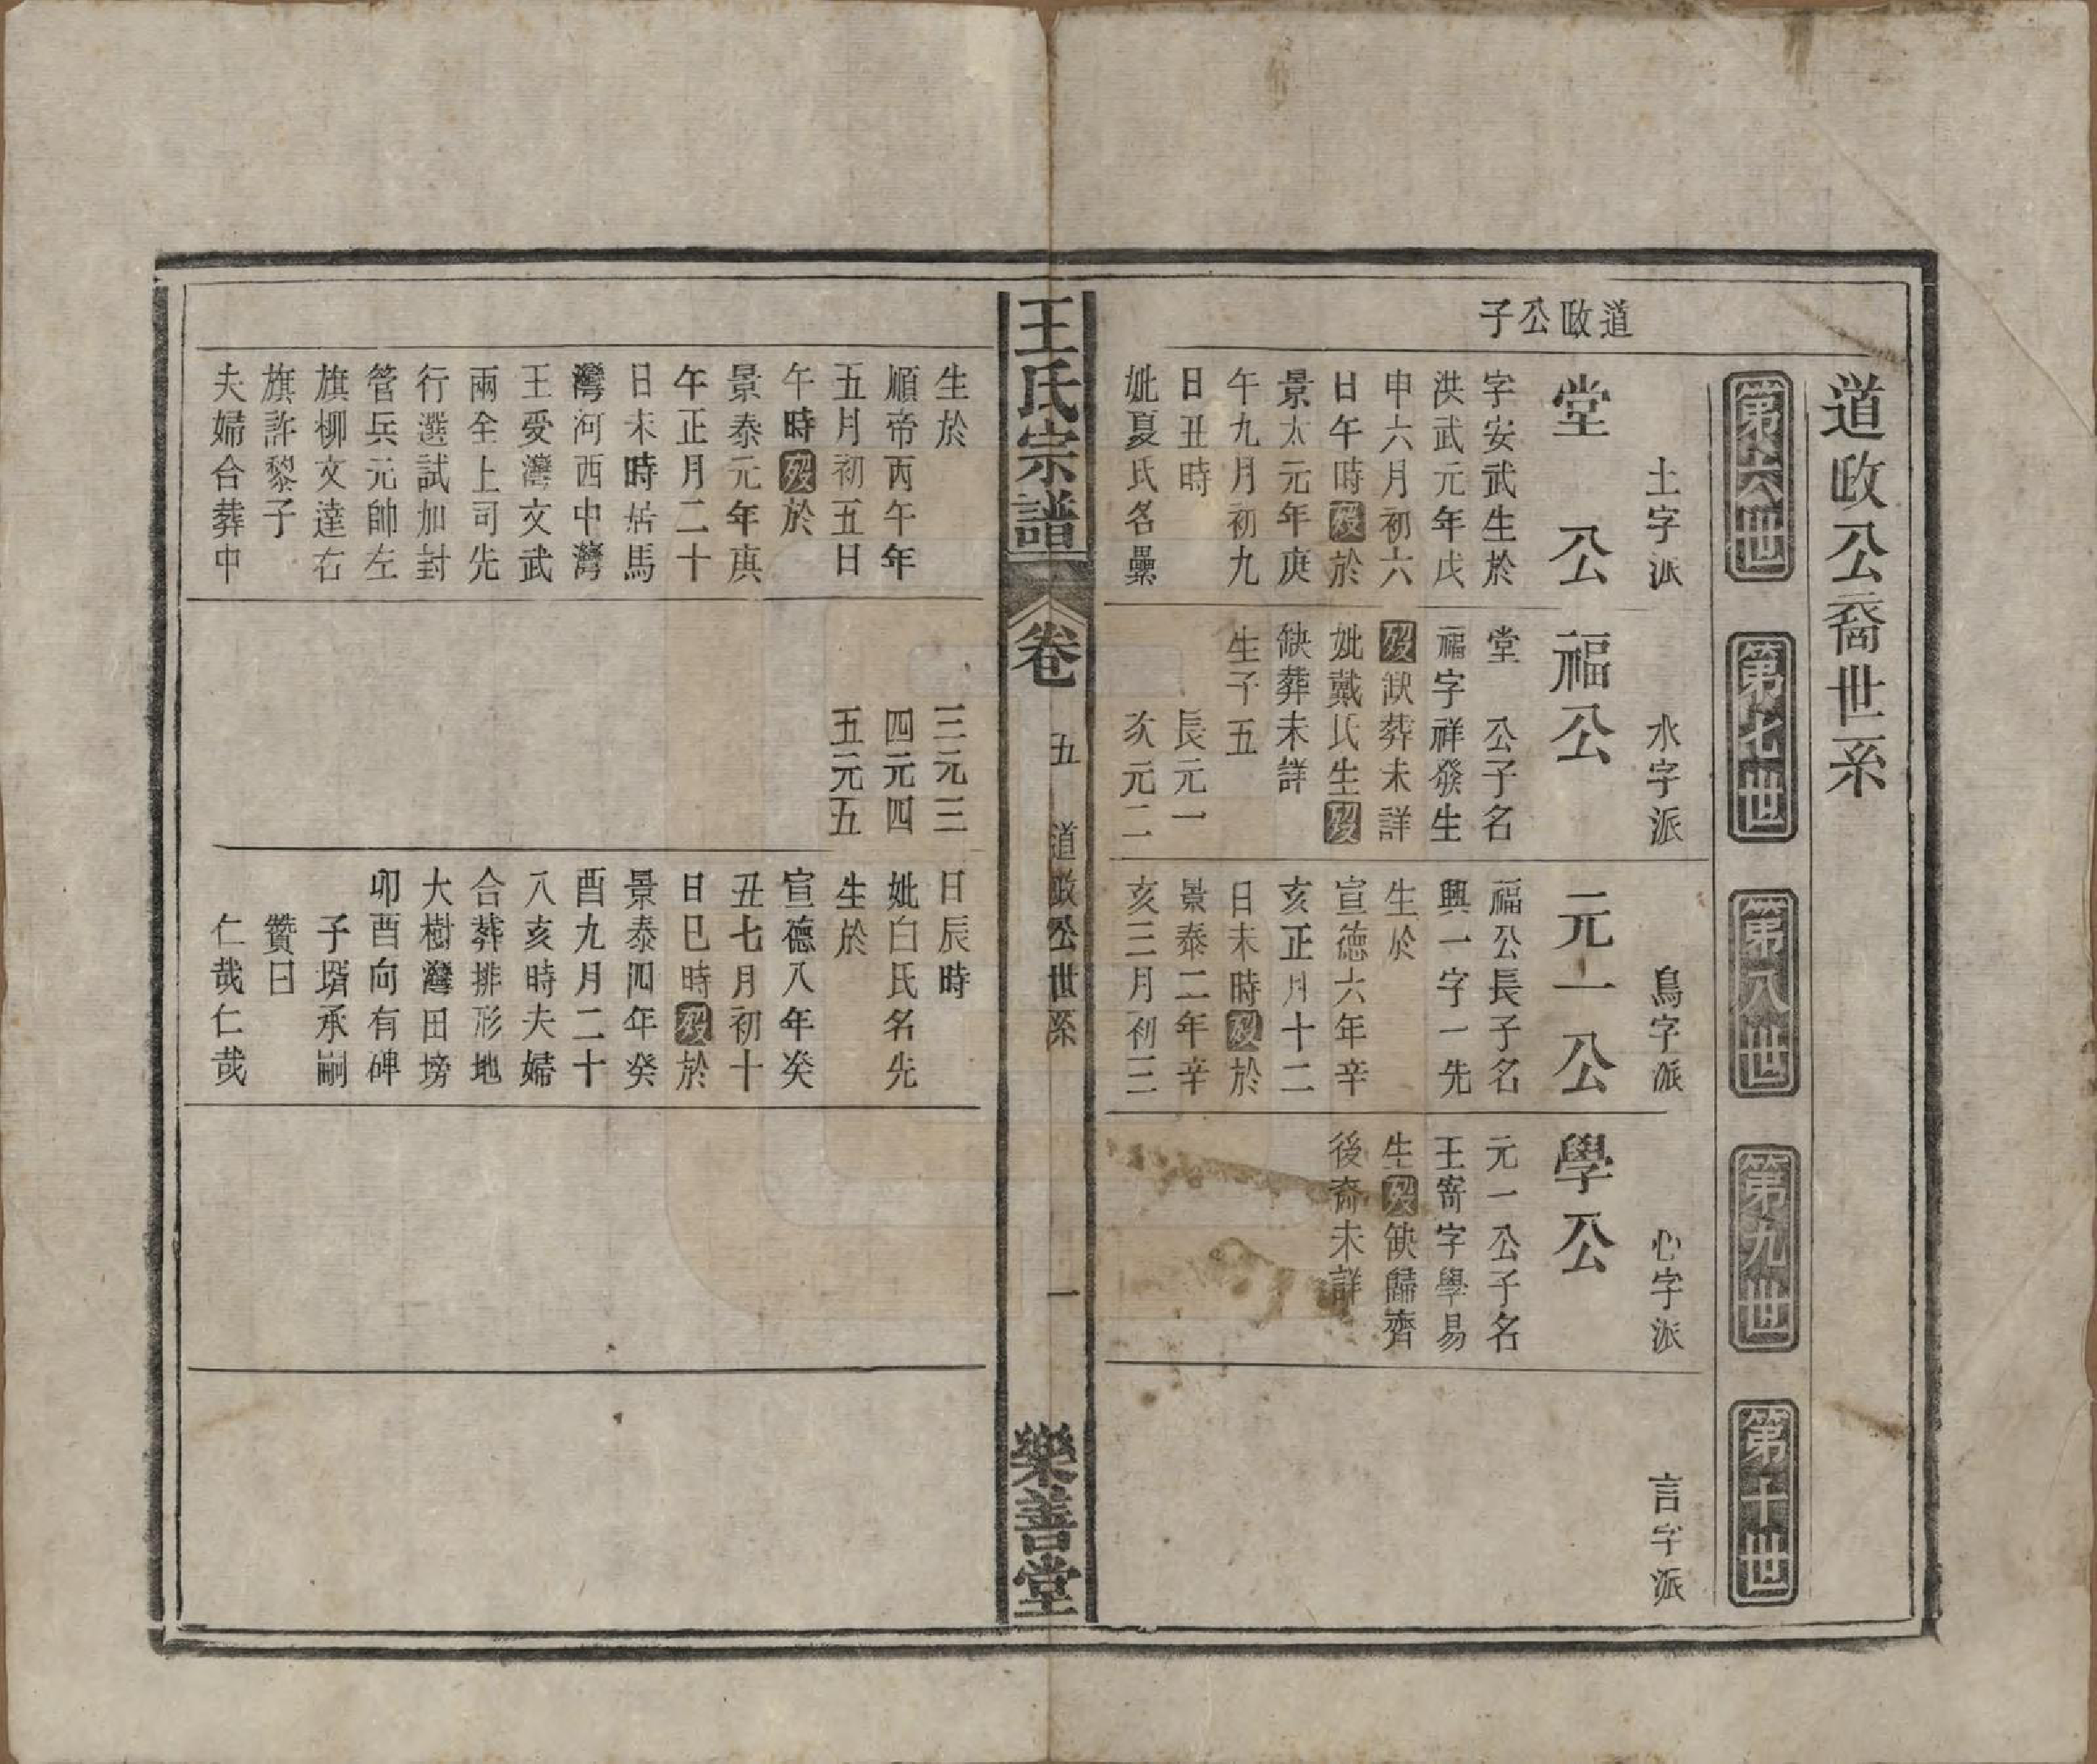 道政公裔世系
第六世
第七世
第八世
第九世
第十世
道政公子
土字派
堂公
字安武生於
洪武元年戊
申六月初六
日午時歿於
景太元年庚
午九月初九
日丑時
妣夏氏名纍
水字派
福公
堂公子名
福字祥發生
歿缺葬未詳
妣戴氏生歿
缺葬未詳
生子五
長元一
次元二
鳥字派
元一公
福公長子名
興一字一先
生於
宣德六年辛
亥正月十二
日未時歿於
景泰二年辛
亥三月初三
心字派
學公
元一公子名
王寄字學易
生歿缺歸齊
後裔未詳
言字派
王氏宗譜
卷五
道政公世系
一
樂善堂
生於
順帝丙午年
五月初五日
午時歿於
景泰元年庚
午正月二十
日未時居馬
灣河西中灣
王受灣文武
兩全上司先
行選試加封
管兵元帥左
旗柳文達右
旗許黎子
夫婦合葬中
三元三
四元四
五元五
日辰時
妣白氏名先
生於
宣德八年癸
丑七月初十
日巳時歿於
景泰四年癸
酉九月二十
八亥時夫婦
合葬排形地
大樹灣田塝
卯酉向有碑
子壻承嗣
贊曰
仁哉仁哉